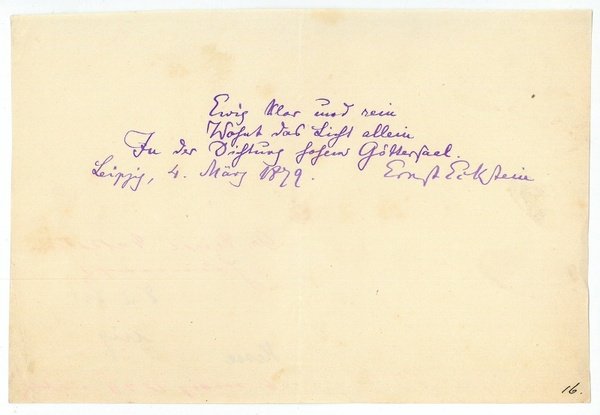 Ewig klar und rein
Wohnt das Licht allein
In der Dichtung hohem Göttersaal.
Leipzig, 4. März 1879. Ernst Eckstein
16.